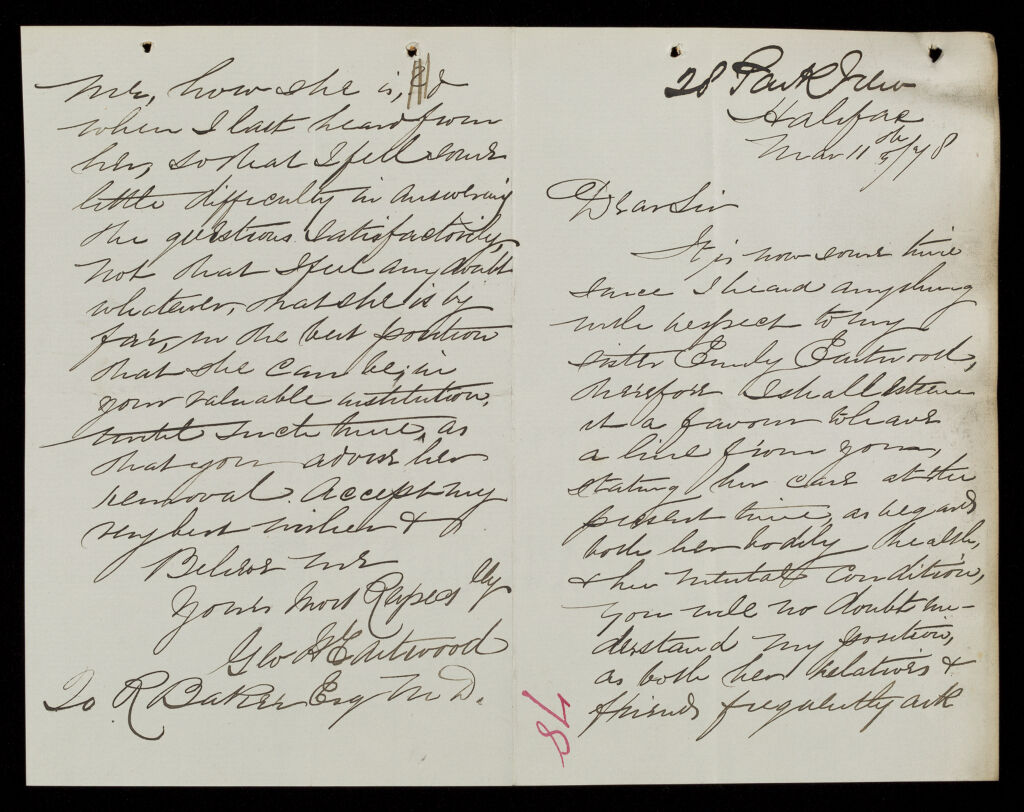 28 Park View
Halifax
Mar 11th 5/78
Dear Sir
It is now some time
since I heard anything
with respect to my
sister Emily Eastwood,
therefore I shall esteem
it a favour to have
a line from you,
stating her case at the
present time, as regards
both her bodily health,
& her mental condition,
you will no doubt un-
derstand my position,
as both her relatives &
friends frequently ask
78
me, how she is, &
when I last heard from
her, so that I feel some
little difficulty in answering
the questions satisfactorily,
not that I feel any doubt
whatever, that she is by
far, in the best position
that she can be, in
your valuable institution,
until such time, as
that you advise her
removal. Accept my
very best wishes &
Believe me
Yours Most Respectfully
Geo H Eastwood
To R Baker Esq M D.